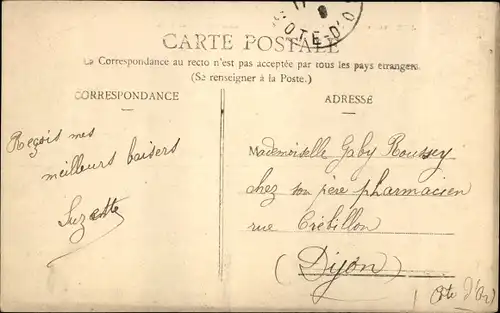 11
8
OTE-D'O
CARTE POSTALE
La Correspondance au recto n'est pas acceptée par tous les pays étrangers
(Se renseigner à la Poste.)
CORRESPONDANCE
Reçois mes
meilleurs baisers
Suzette
ADRESSE
Mademoiselle Gaby Roussey
chez son père pharmacien
rue Crébillon
(Dijon)
(Côte d'Or)